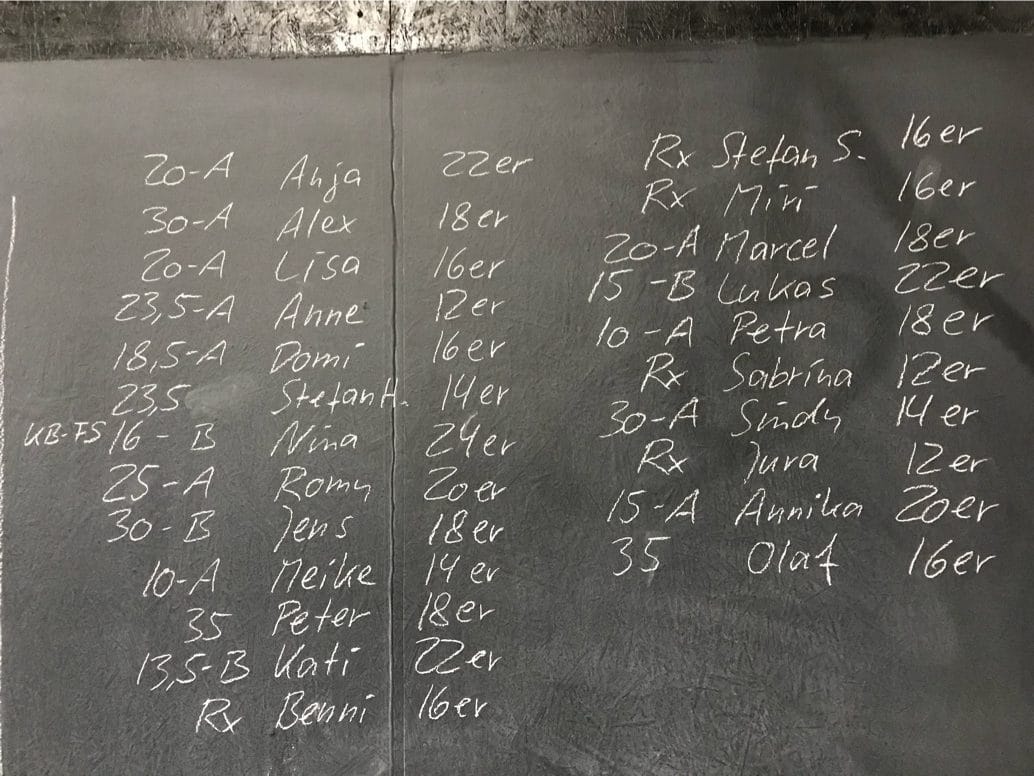 20-A Anja 22er
30-A Alex 18er
20-A Lisa 16er
23,5-A Anne 12er
18,5-A Domi 16er
23,5 Stefan H. 14er
KB-FS 16-B Nina 24er
25-A Romy 20er
30-B Jens 18er
10-A Meike 14er
35 Peter 18er
13,5-B Kati 22er
Rx Benni 16er
Rx Stefan S. 16er
Rx Miri 16er
20-A Marcel 18er
15-B Lukas 22er
10-A Petra 18er
Rx Sabrina 12er
30-A Sindy 14er
Rx Jura 12er
15-A Annika 20er
35 Olaf 16er